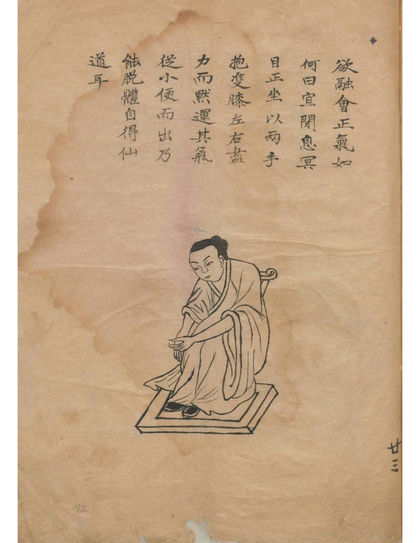 欲融會正氣如
何曰宜閑息冥
目正坐以兩手
抱雙膝左右盡
力而黙運其氣
從小便而出乃
能脱體自得仙
道耳
廿三